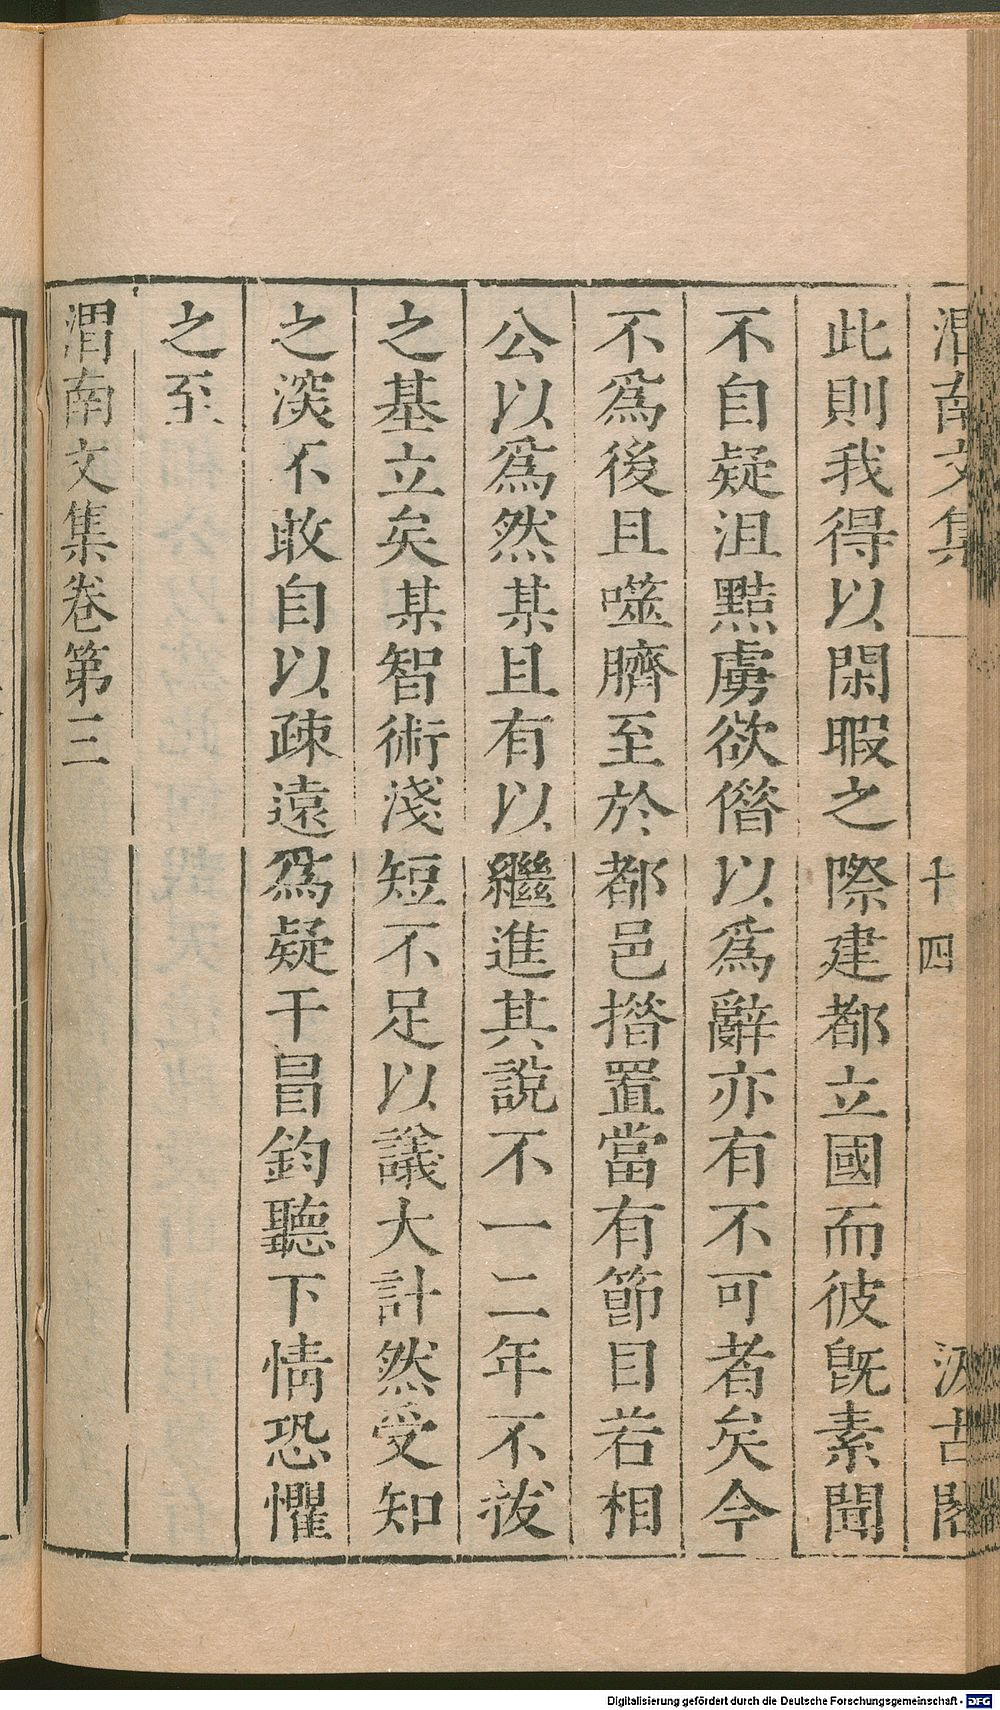 渭南文集 十四 汲古閣
此則我得以閑暇之際建都立國而彼旣素聞
不自疑沮黠虜欲僭以爲辭亦有不可者矣今
不爲後且噬臍至於都邑措置當有節目若相
公以爲然某且有以繼進其說不一二年不㧞
之基立矣某智術淺短不足以議大計然受知
之深不敢自以疎遠爲疑干冒鈞聽下情恐懼
之至
渭南文集卷第三
Digitalisierung gefördert durch die Deutsche Forschungsgemeinschaft - DFG